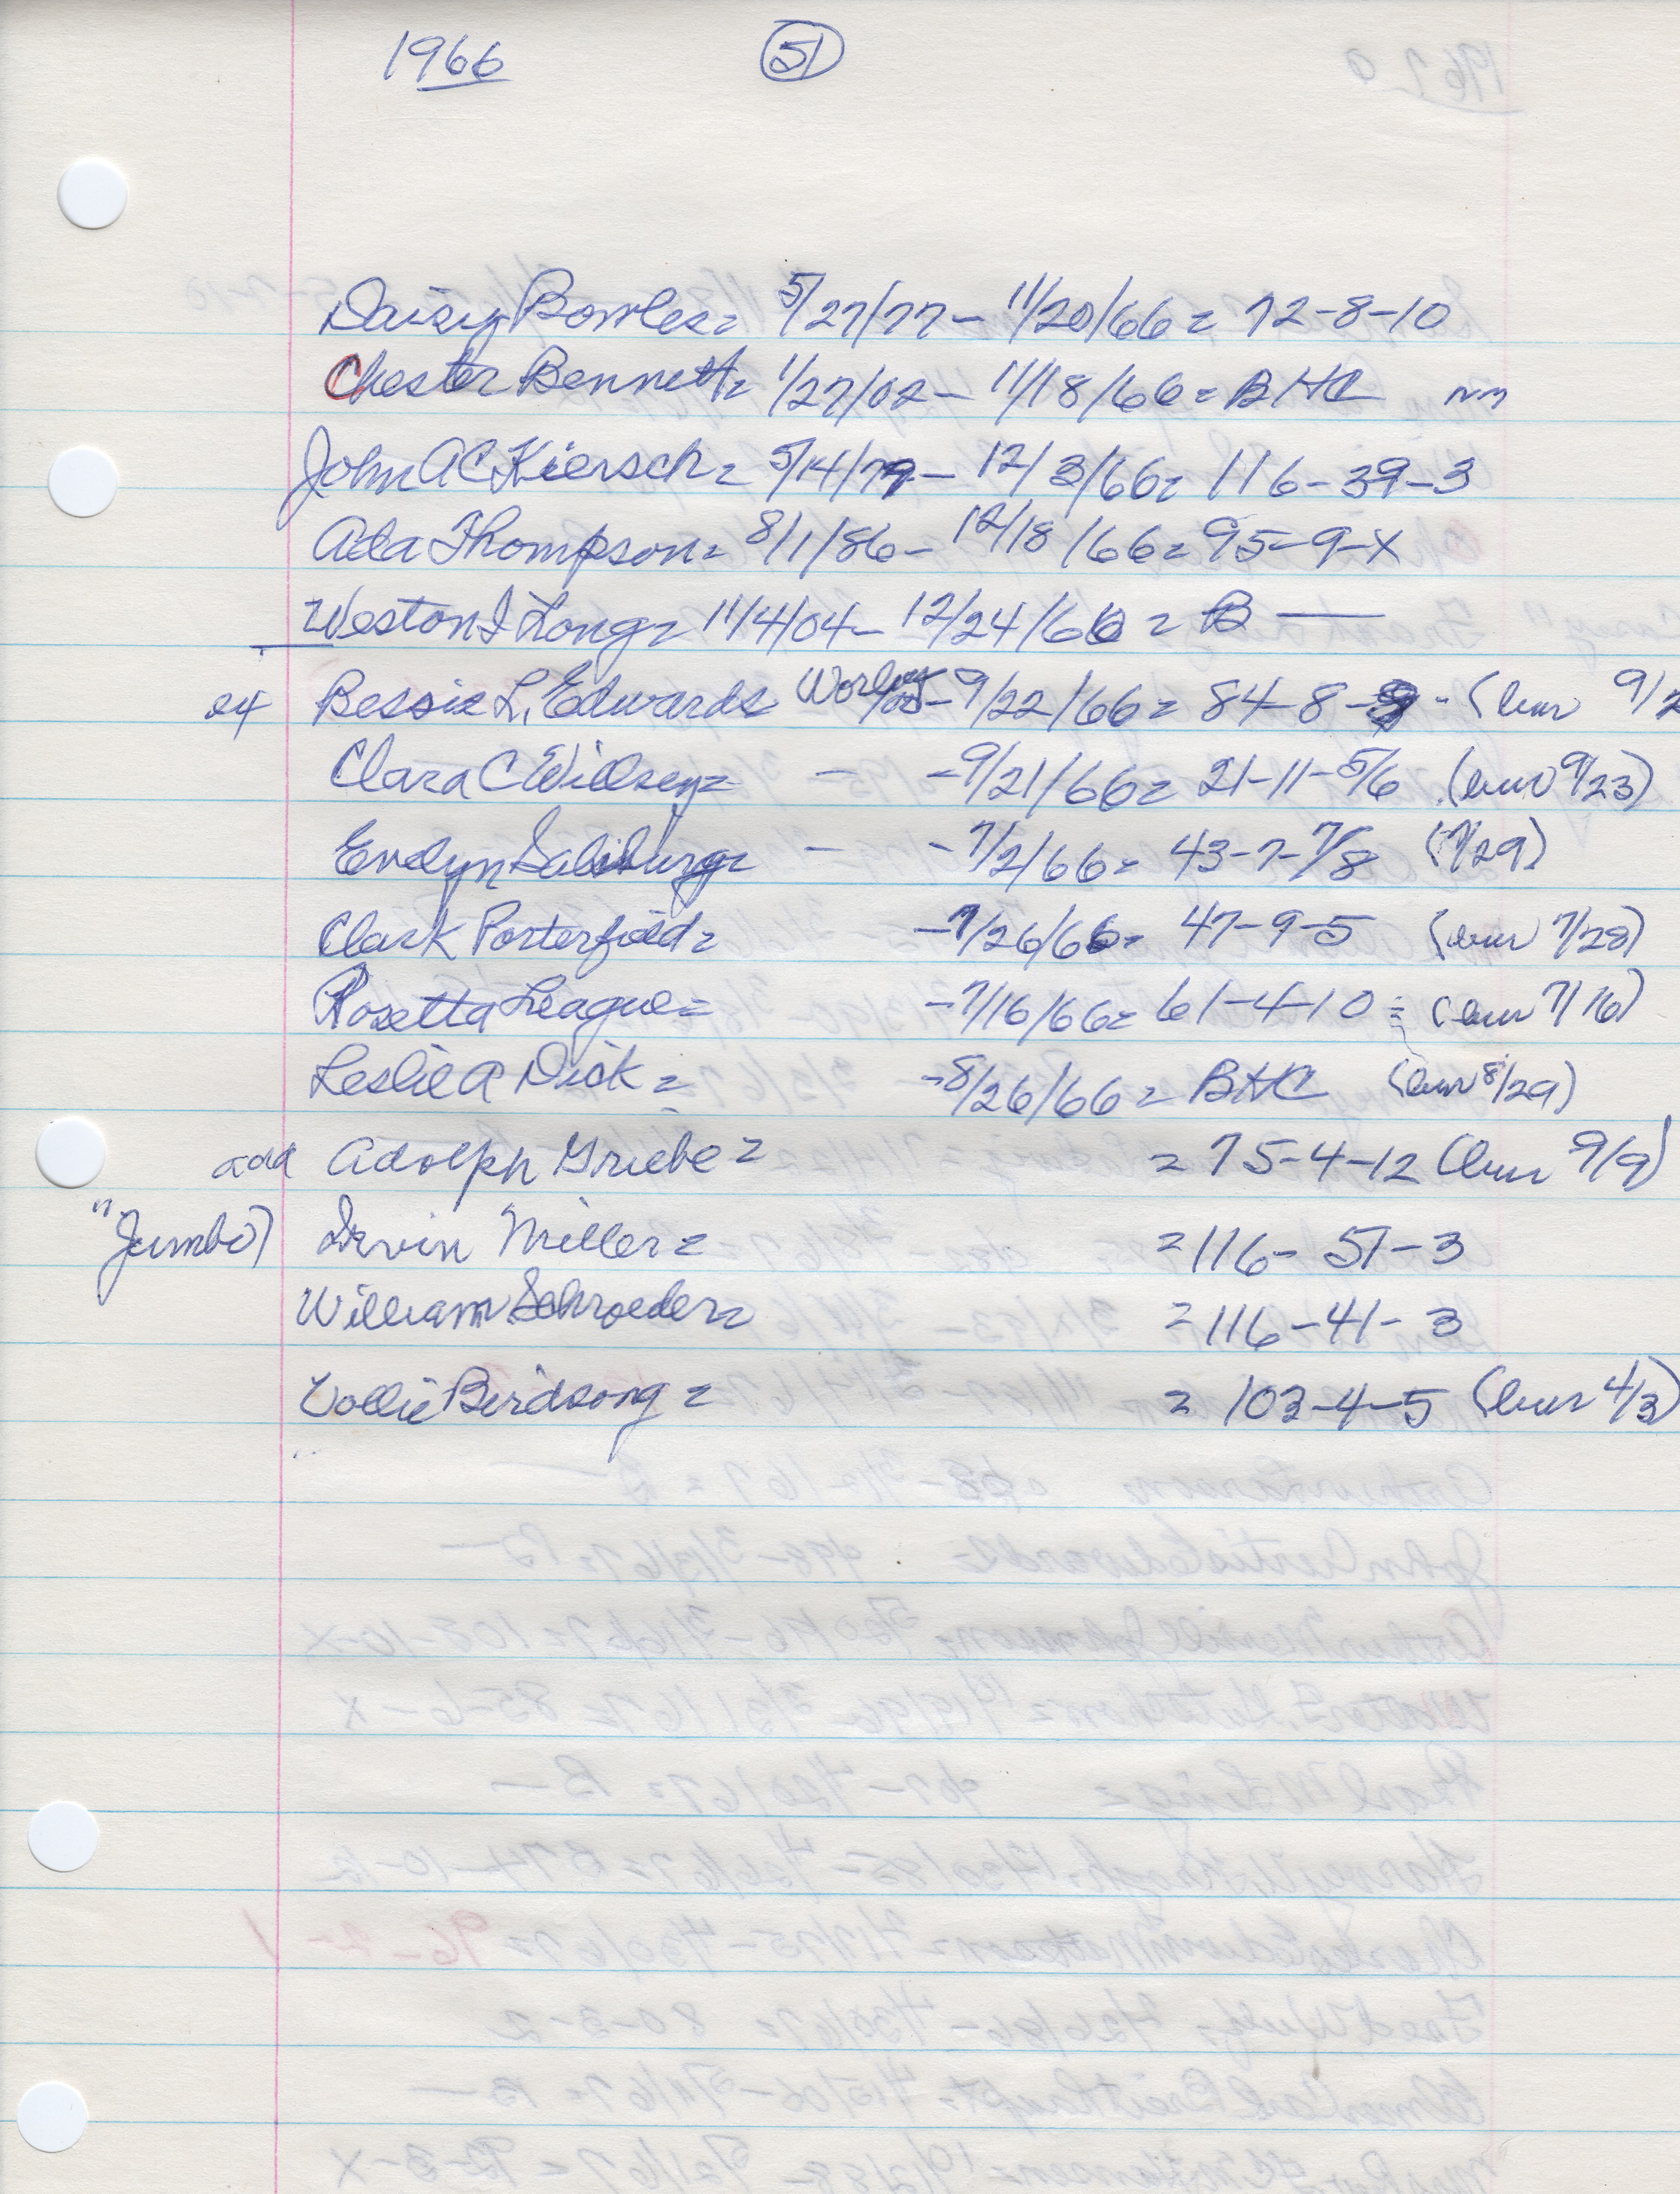 1966 51
Daisy Bowles = 5/27/77 - 11/20/66 = 72-8-10
Chester Bennett = 1/27/02 - 11/18/66 = BHC nm
John A C Kiersch = 5/14/79 - 12/3/66 = 116-39-3
Ada Thompson = 8/1/86 - 12/18/66 = 95-9-X
Weston I Long = 11/4/04 - 12/24/66 = B —
ex Bessie L. Edwards Worley - 9/22/66 = 84-8-9 - (bur 9/2
Clara C Willsey = - - 9/21/66 = 21-11-5/6 (bur 9/23)
Evelyn Salisburg = - - 7/2/66 = 43-7-7/8 (7/29)
Clark Porterfield = - 7/26/66 = 47-9-5 (bur 7/28)
Rosetta League = - 7/16/66 = 61-4-10 = (bur 7/16)
Leslie A Dick = - 8/26/66 = BHC (bur 8/29)
add Adolph Griebe = = 75-4-12 (bur 9/9)
"Jumbo) Irvin Miller = = 116-51-3
William Schroeder = = 116-41-3
Vollie Birdsong = = 103-4-5 (bur 4/3)